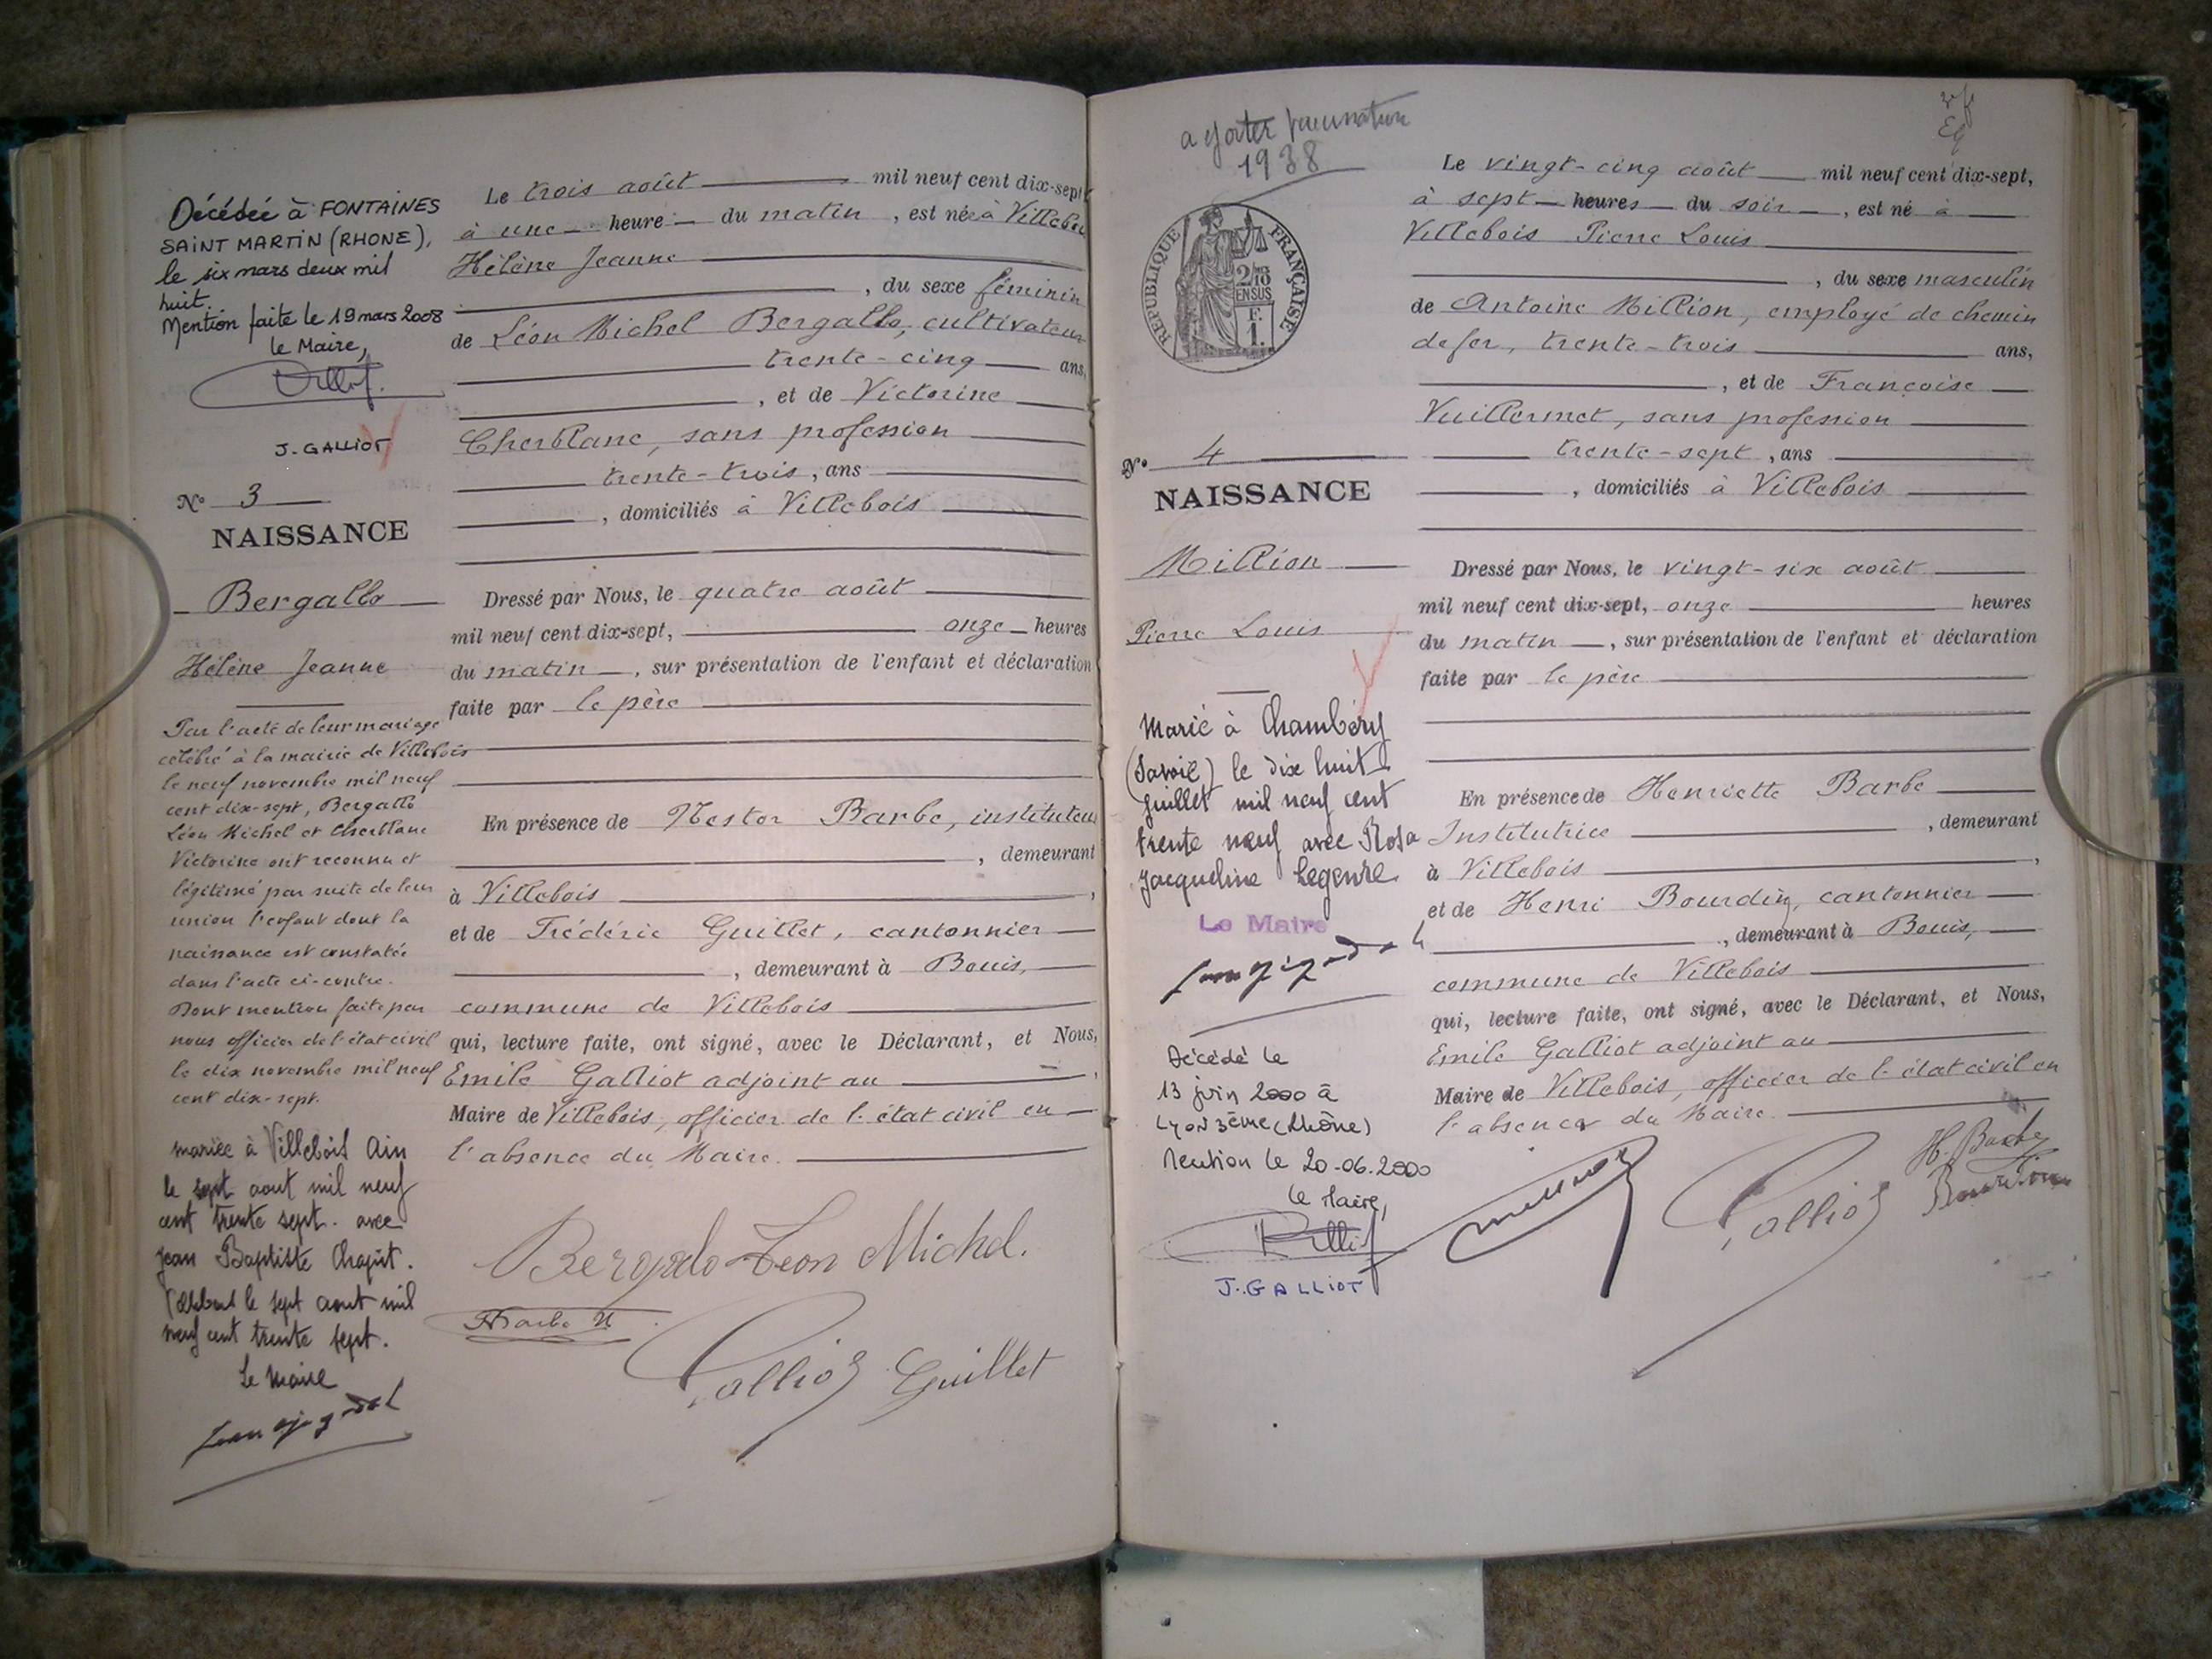 Décédée à FONTAINES
SAINT MARTIN (RHONE),
le six mars deux mil
huit.
Mention faite le 19 mars 2008
le Maire,
J. GALLIOT
N° 3
NAISSANCE
Bergallo
Hélène Jeanne
Par l'acte de leur mariage
célébré à la mairie de Villebois
le neuf novembre mil neuf
cent dix-sept, Bergallo
Léon Michel et Cherblanc
Victorine ont reconnu et
légitimé par suite de leur
union l'enfant dont la
naissance est constatée
dans l'acte ci-contre.
Dont mention faite par
nous officier de l'état civil
le dix novembre mil neuf
cent dix-sept.
mariée à Villebois Ain
le sept aout mil neuf
cent trente sept. avec
Jean Baptiste Chaput.
Villebois le sept aout mil
neuf cent trente sept.
Le Maire
Le trois août mil neuf cent dix-sept
à une heure du matin, est née à Villebois
Hélène Jeanne
, du sexe féminin
de Léon Michel Bergallo, cultivateur
trente-cinq ans,
, et de Victorine
Cherblanc, sans profession
trente-trois, ans
, domiciliés à Villebois
Dressé par Nous, le quatre août
mil neuf cent dix-sept, onze heures
du matin, sur présentation de l'enfant et déclaration
faite par le père
En présence de Nestor Barbe, instituteur
, demeurant
à Villebois,
et de Frédéric Guillet, cantonnier
, demeurant à Bouis,
commune de Villebois
qui, lecture faite, ont signé, avec le Déclarant, et Nous,
Emile Galliot adjoint au
Maire de Villebois, officier de l'état civil en
l'absence du Maire.
Bergallo Léon Michel.
Barbe N
Galliot Guillet
1938
RÉPUBLIQUE FRANÇAISE
2/10
EN SUS
F.
1.
N° 4
NAISSANCE
Million
Pierre Louis
Marié à Chambéry
(Savoie) le dix huit
juillet mil neuf cent
trente neuf avec Rosa
Jacqueline Legenre
Le Maire
Décédé le
13 juin 2000 à
LYON 3ème (Rhône)
Mention le 20-06.2000
le Maire,
J. GALLIOT
Le vingt-cinq août mil neuf cent dix-sept,
à sept heures du soir, est né à
Villebois Pierre Louis
, du sexe masculin
de Antoine Million, employé de chemin
de fer, trente-trois ans,
, et de Françoise
Vuillermet, sans profession
trente-sept, ans
, domiciliés à Villebois
Dressé par Nous, le vingt-six août
mil neuf cent dix-sept, onze heures
du matin, sur présentation de l'enfant et déclaration
faite par le père
En présence de Henriette Barbe
Institutrice, demeurant
à Villebois,
et de Henri Bourdin, cantonnier
, demeurant à Bouis,
commune de Villebois
qui, lecture faite, ont signé, avec le Déclarant, et Nous,
Emile Galliot adjoint au
Maire de Villebois, officier de l'état civil en
l'absence du Maire.
H. Barbe
Million Galliot Bourdin